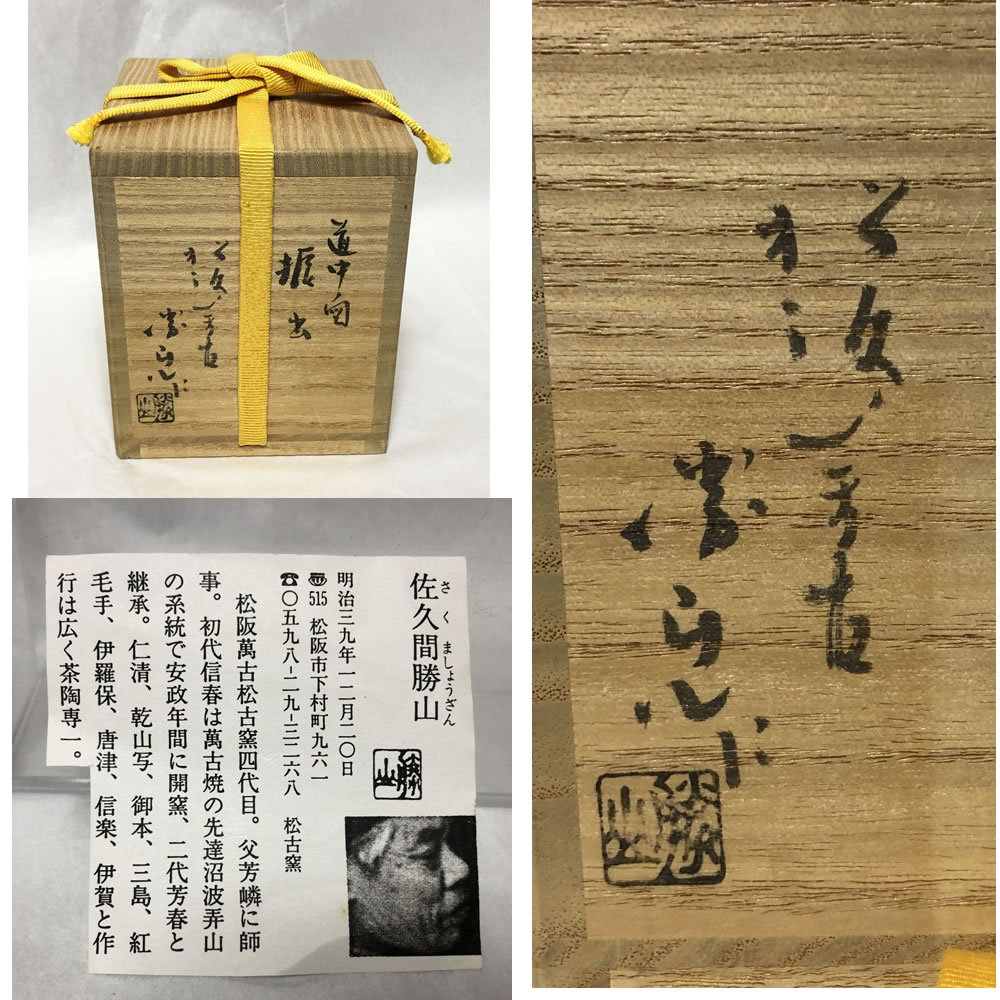 道中図
振出
松阪萬古
勝山作
勝山
佐久間勝山
さくましょうざん
勝山
明治三九年一二月二〇日
〠515 松阪市下村町九六一
☎〇五九八−二九−三二六八 松古窯
松阪萬古松古窯四代目。父芳嶙に師
事。初代信春は萬古焼の先達沼波弄山
の系統で安政年間に開窯、二代芳春と
継承。仁清、乾山写、御本、三島、紅
毛手、伊羅保、唐津、信楽、伊賀と作
行は広く茶陶専一。
松阪萬古
勝山作
勝山